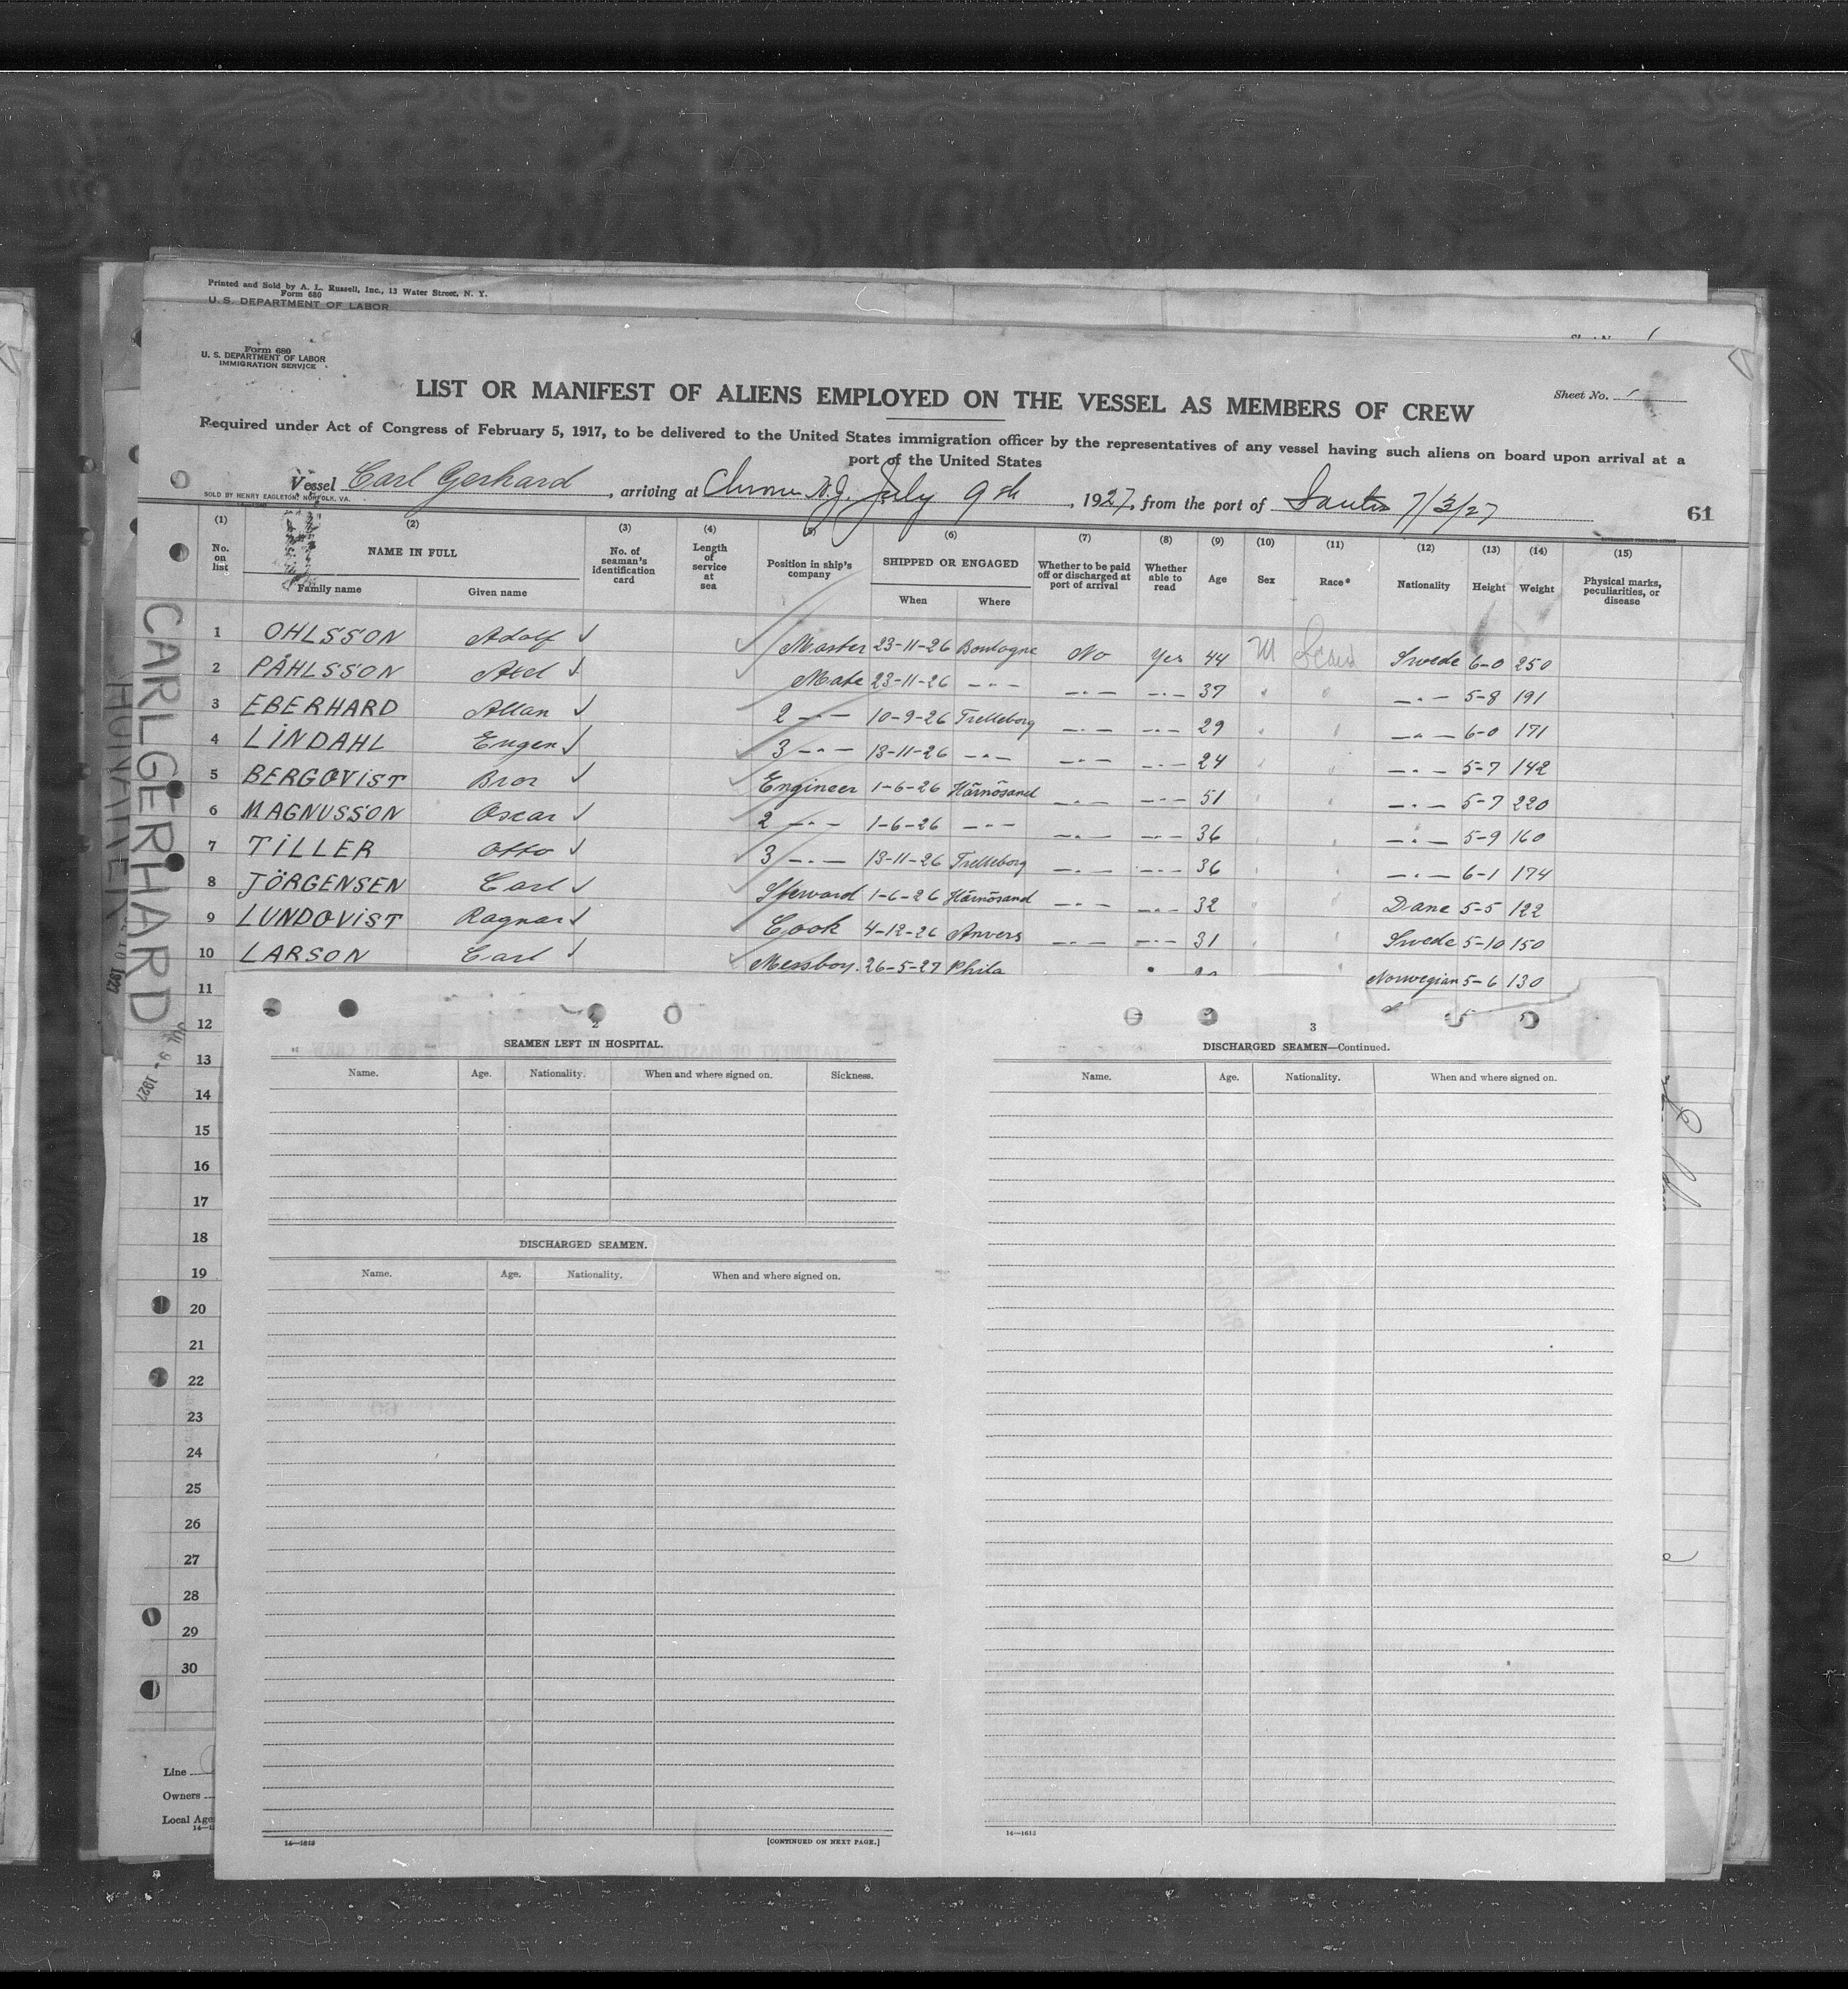 Printed and Sold by A. L. Russell, Inc., 13 Water Street, N. Y.
Form 680
U. S. DEPARTMENT OF LABOR
Form 680
U. S. DEPARTMENT OF LABOR
IMMIGRATION SERVICE
Sheet No. 1
LIST OR MANIFEST OF ALIENS EMPLOYED ON THE VESSEL AS MEMBERS OF CREW
Required under Act of Congress of February 5, 1917, to be delivered to the United States immigration officer by the representatives of any vessel having such aliens on board upon arrival at a
port of the United States
Vessel Carl Gerhard, arriving at Chrome N.J. July 9th, 1927, from the port of Santos 7/3/27
SOLD BY HENRY EAGLETON, NORFOLK, VA.
61
(1) (2) (3) (4) (5) (6) (7) (8) (9) (10) (11) (12) (13) (14) (15)
No. on list NAME IN FULL Family name Given name No. of seaman's identification card Length of service at sea Position in ship's company SHIPPED OR ENGAGED When Where Whether to be paid off or discharged at port of arrival Whether able to read Age Sex Race* Nationality Height Weight Physical marks, peculiarities, or disease
1 OHLSSON Adolf Master 23-11-26 Boulogne No Yes 44 M Scand Swede 6-0 250
2 PÅHLSSON Axel Mate 23-11-26 -"- -"- -"- 37 " " -"- 5-8 191
3 EBERHARD Allan 2 -"- 10-9-26 Trelleborg -"- -"- 29 " " -"- 6-0 171
4 LINDAHL Eugen 3 -"- 13-11-26 -"- -"- -"- 24 " " -"- 5-7 142
5 BERGQVIST Bror Engineer 1-6-26 Härnösand -"- -"- 51 " " -"- 5-7 220
6 MAGNUSSON Oscar 2 -"- 1-6-26 -"- -"- -"- 36 " " -"- 5-9 160
7 TILLER Otto 3 -"- 13-11-26 Trelleborg -"- -"- 36 " " -"- 6-1 174
8 JÖRGENSEN Carl Steward 1-6-26 Härnösand -"- -"- 32 " " Dane 5-5 122
9 LUNDQVIST Ragnar Cook 4-12-26 Anvers -"- -"- 31 " " Swede 5-10 150
10 LARSON Carl Messboy. 26-5-27 Phila Norwegian 5-6 130
11
12
13
14
15
16
17
18
19
20
21
22
23
24
25
26
27
28
29
30
CARL GERHARD
JUL 9 - 1927
Line
Owners
Local Age
2
SEAMEN LEFT IN HOSPITAL.
Name. Age. Nationality. When and where signed on. Sickness.
DISCHARGED SEAMEN.
Name. Age. Nationality. When and where signed on.
14—1613
[CONTINUED ON NEXT PAGE.]
3
DISCHARGED SEAMEN—Continued.
Name. Age. Nationality. When and where signed on.
14—1613